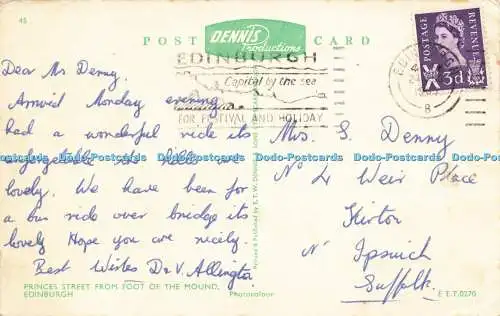 45
POST CARD
DENNIS
Productions
EDINBURGH
Capital by the sea
FOR FESTIVAL AND HOLIDAY
POSTAGE
REVENUE
3d
8
Dear Mrs Denny.
Arrived Monday evening
had a wonderful ride its
unforgetable so hilly
lovely. We have been for
a bus ride over bridge its
lovely Hope you are nicely.
Best Wishes D & V. Allington.
Mrs. S. Denny
No 4 Weir Place
Kirton
Nr Ipswich
Suffolk.
PRINCES STREET FROM FOOT OF THE MOUND,
EDINBURGH
Photocolour
E E.T.0270
Dodo-Postcards Dodo-Postcards Dodo-Postcards Dodo-Postcards